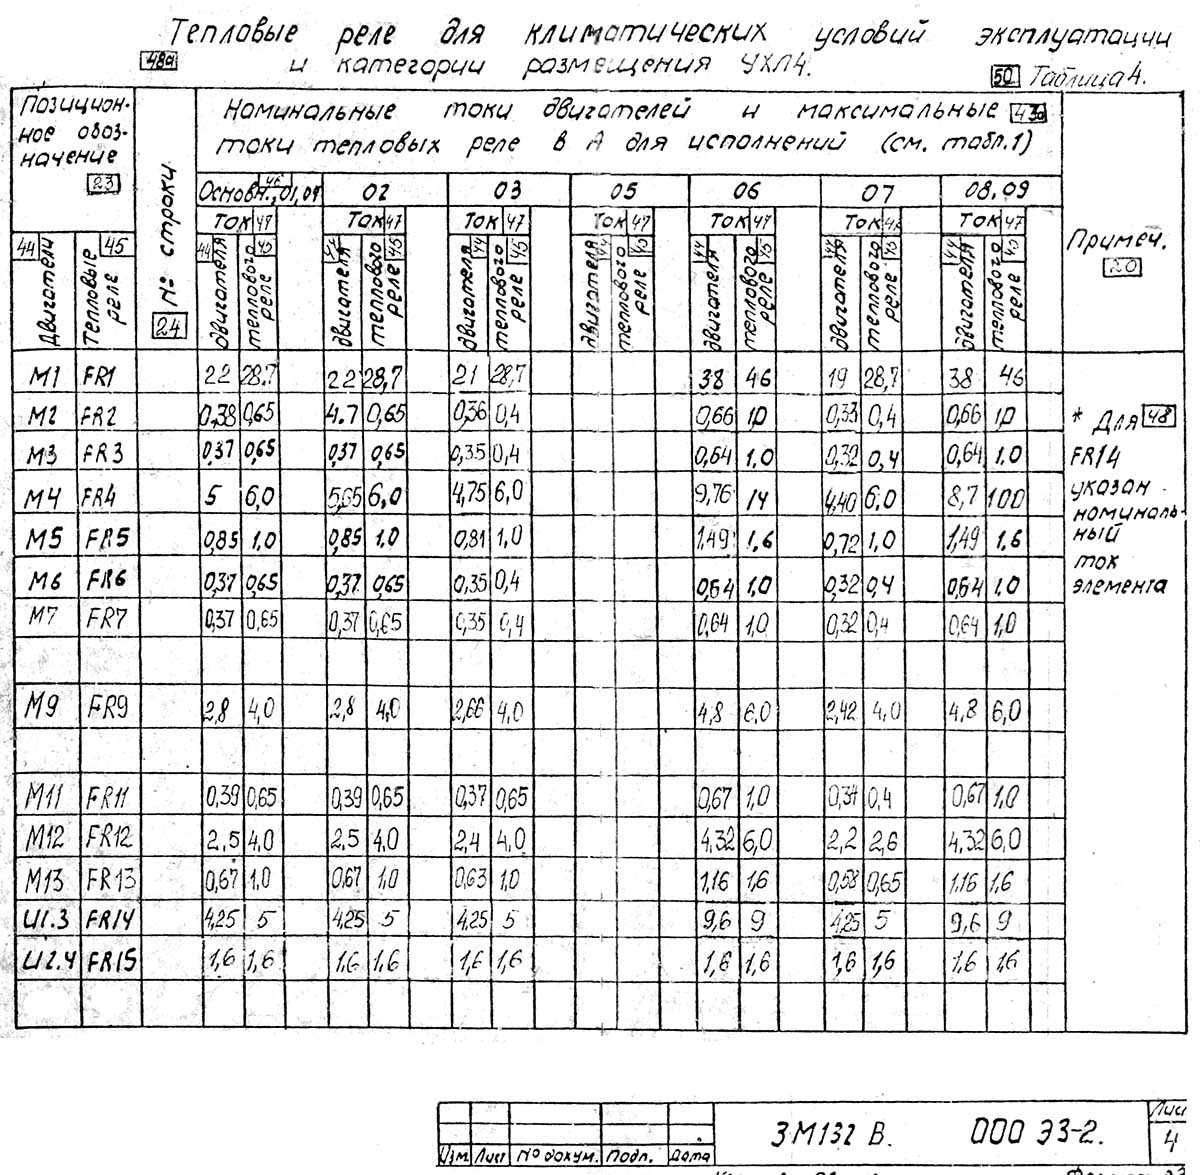 Тепловые реле для климатических условий эксплуатации
48а и категории размещения УХЛ4. 50 Таблица 4.
Позицион-
ное обоз-
начение
23
№ строки
24
Номинальные токи двигателей и максимальные 43а
токи тепловых реле в А для исполнений (см. табл.1)
Основн., 01, 04 46 02 03 05 06 07 08,09
Ток 47 Ток 47 Ток 47 Ток 47 Ток 47 Ток Ток 47
Примеч.
20
44 Двигатели 45 Тепловые реле 44 двигателя 45 теплового реле двигателя 45 теплового реле 44 двигателя 45 теплового реле двигателя 45 теплового реле 44 двигателя 45 теплового реле 44 двигателя 45 теплового реле 44 двигателя 45 теплового реле
М1 FR1 22 28.7 22 28,7 21 28,7 38 46 19 28,7 38 46
М2 FR2 0,38 0,65 4.7 0,65 0,36 0,4 0,66 1,0 0,33 0,4 0,66 1,0
М3 FR3 0,37 0,65 0,37 0,65 0,35 0,4 0,64 1.0 0,32 0,4 0,64 1.0
М4 FR4 5 6,0 5,65 6,0 4,75 6,0 9,76 14 4,40 6,0 8,7 100
М5 FR5 0,85 1,0 0,85 1,0 0,81 1,0 1,49 1,6 0,72 1,0 1,49 1.6
М6 FR6 0,37 0,65 0,37 0,65 0,35 0,4 0,64 1,0 0,32 0,4 0,64 1.0
М7 FR7 0,37 0,65 0,37 0,65 0,35 0,4 0,64 1,0 0,32 0,4 0,64 1,0
М9 FR9 2,8 4,0 2,8 4,0 2,66 4,0 4,8 6,0 2,42 4,0 4,8 6,0
М11 FR11 0,39 0,65 0,39 0,65 0,37 0,65 0,67 1,0 0,34 0,4 0,67 1,0
М12 FR12 2,5 4,0 2,5 4,0 2,4 4,0 4,32 6,0 2,2 2,6 4,32 6,0
М13 FR13 0,67 1,0 0,67 1,0 0,63 1,0 1,16 1,6 0,58 0,65 1,16 1,6
U1.3 FR14 4,25 5 4,25 5 4,25 5 9,6 9 4,25 5 9,6 9
U2.4 FR15 1,6 1,6 1,6 1,6 1,6 1,6 1,6 1,6 1,6 1,6 1,6 1,6
* Для 48
FR14
указан
номиналь-
ный
ток
элемента
Изм Лист № докум. Подп. Дата
3М132 В. 000 Э3-2.
Лист
4